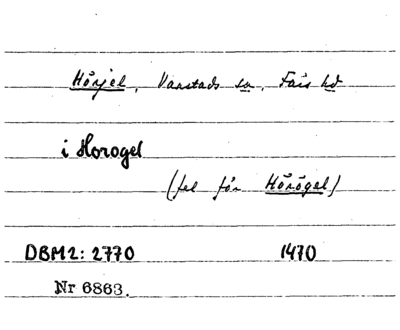 Hörjel, Vanstads sn, Färs hd
i Horogel
(fel för Hörögel)
DBM2: 2770 1470
Nr 6863.